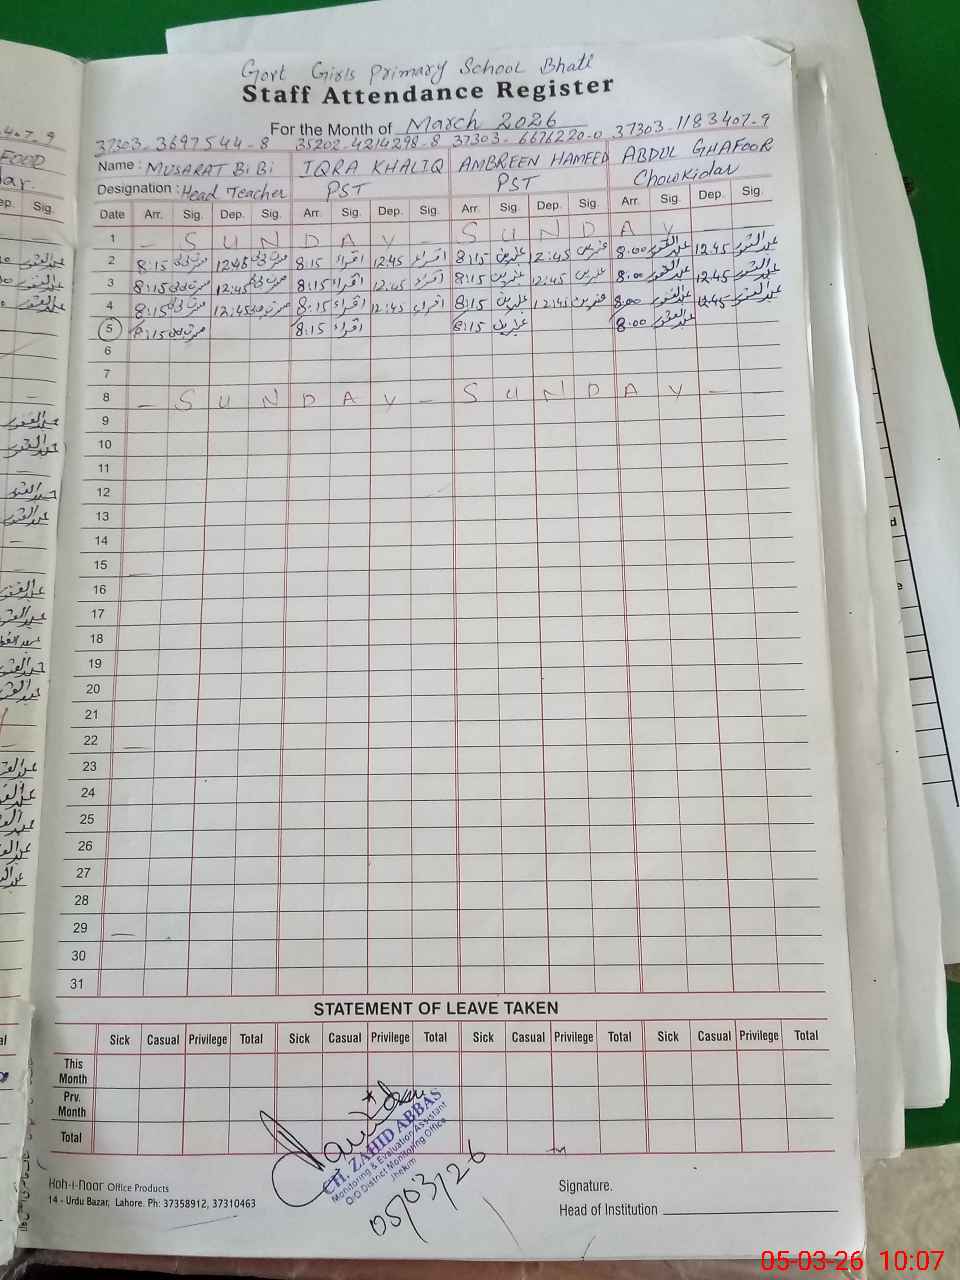 Govt Girls Primary School Bhati
Staff Attendance Register
For the Month of March 2026
37303-3697544-8 35202-4214298-8 37303-6676220-0 37303-1183407-9
Name : MUSARAT BiBi IQRA KHALIQ AMBREEN HAMEED ABDUL GHAFOOR
Designation : Head Teacher PST PST Chowkidar
Date Arr. Sig. Dep. Sig. Arr. Sig. Dep. Sig. Arr. Sig. Dep. Sig. Arr. Sig. Dep. Sig.
1 – S U N D A Y – S U N D A Y –
2 8:15 12:45 8:15 اقراء 12:45 اقراء 8:15 عنبرین 12:45 عنبرین 8:00 عبدالغفور 12:45 عبدالغفور
3 8:15 12:45 8:15 اقراء 12:45 اقراء 8:15 عنبرین 12:45 عنبرین 8:00 عبدالغفور 12:45 عبدالغفور
4 8:15 12:45 8:15 اقراء 12:45 اقراء 8:15 عنبرین 12:45 عنبرین 8:00 عبدالغفور 12:45 عبدالغفور
5 8:15 8:15 اقراء 8:15 عنبرین 8:00 عبدالغفور
6
7
8 – S U N D A Y – S U N D A Y –
9
10
11
12
13
14
15
16
17
18
19
20
21
22
23
24
25
26
27
28
29
30
31
STATEMENT OF LEAVE TAKEN
Sick Casual Privilege Total Sick Casual Privilege Total Sick Casual Privilege Total Sick Casual Privilege Total
This Month
Prv. Month
Total
CH. ZAHID ABBAS
Monitoring & Evaluation Assistant
O/O District Monitoring Office
Jhelum
05/03/26
Koh-i-Noor Office Products
14 - Urdu Bazar, Lahore. Ph: 37358912, 37310463
Signature.
Head of Institution
05-03-26 10:07